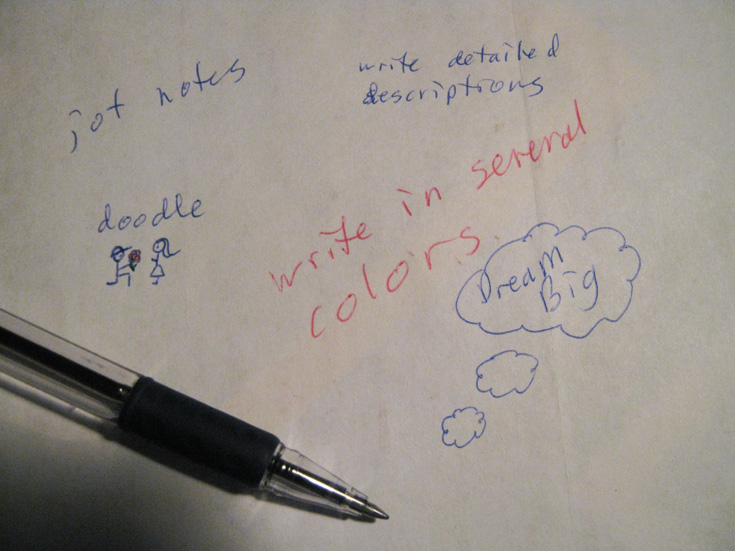 jot notes
write detailed
descriptions
doodle
write in several
colors
Dream
Big